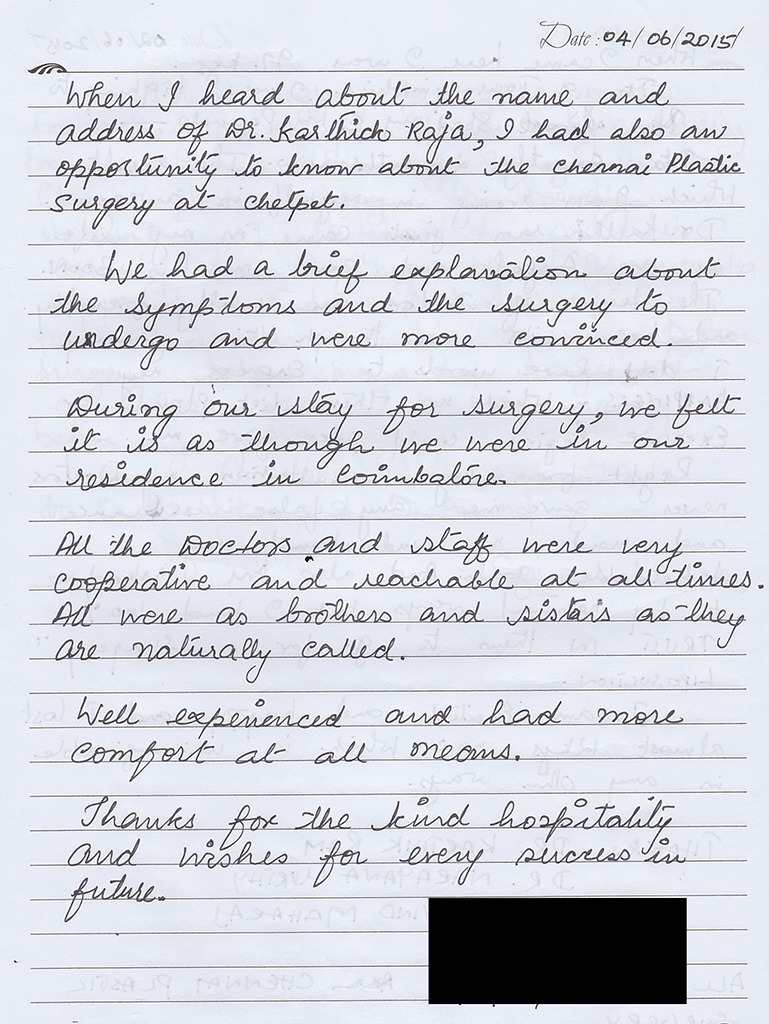 Date: 04/06/2015/
When I heard about the name and
address of Dr. Karthick Raja, I had also an
opportunity to know about the Chennai Plastic
Surgery at chetpet.
We had a brief explanation about
the symptoms and the surgery to
undergo and were more convinced.
During our stay for surgery, we felt
it is as though we were in our
residence in Coimbatore.
All the Doctors and staff were very
cooperative and reachable at all times.
All were as brothers and sisters as they
are naturally called.
Well experienced and had more
comfort at all means.
Thanks for the kind hospitality
and wishes for every success in
future.